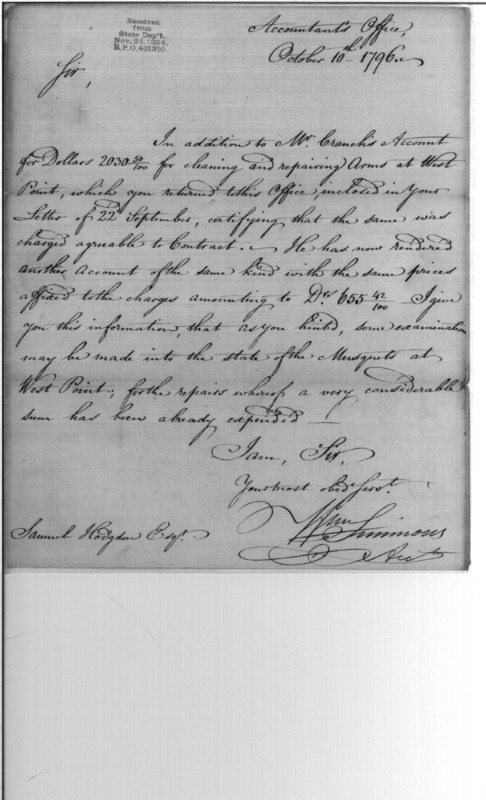 Received
from
State Dep't.
Nov. 24, 1894.
R.P.O. 401310.
Accountant's Office,
October 10th 1796.
Sir,
In addition to Mr. Cranch's Account
for Dollars 2030 50/100 for cleaning and repairing Arms at West
Point, which you returned to this Office, inclosed in Your
Letter of 22d September, certifying that the same was
charged agreable to Contract. He has now rendered
another Account of the same kind with the same prices
affixed to the charges amounting to Drs 655 42/100 I give
you this information, that as you hinted, some examination
may be made into the state of the Musquets at
West Point; for the repairs whereof a very considerable
sum has been already expended
I am, Sir,
Your most obed Servt.
Wm Simmons
Acct
Samuel Hodgdon Esqr.